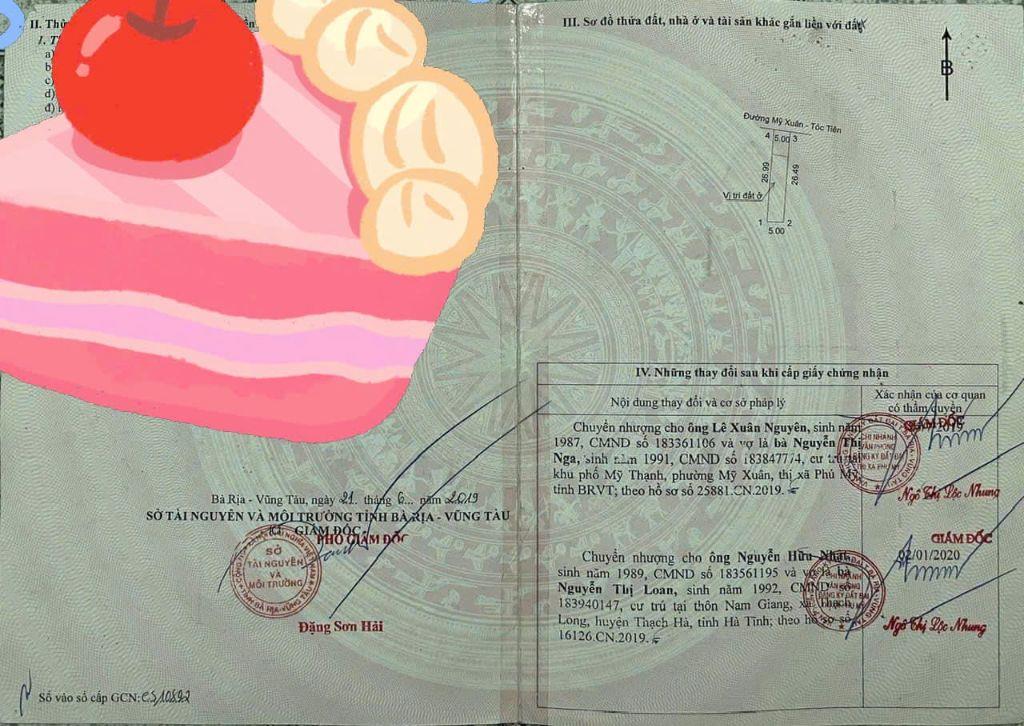 II. Thử
1. T
a)
b
c)
d)
đ)
Bà Rịa - Vũng Tàu, ngày 21. tháng 6... năm 2019
SỞ TÀI NGUYÊN VÀ MÔI TRƯỜNG TỈNH BÀ RỊA - VŨNG TÀU
GIÁM ĐỐC
PHÓ GIÁM ĐỐC
SỞ
TÀI NGUYÊN
VÀ
MÔI TRƯỜNG
Đặng Sơn Hải
Số vào sổ cấp GCN: CS10892
III. Sơ đồ thửa đất, nhà ở và tài sản khác gắn liền với đất
B
Đường Mỹ Xuân - Tóc Tiên
4 5.00 3
26.99
26.49
Vị trí đất ở
1 2
5.00
IV. Những thay đổi sau khi cấp giấy chứng nhận
Nội dung thay đổi và cơ sở pháp lý
Xác nhận của cơ quan
có thẩm quyền
Chuyển nhượng cho ông Lê Xuân Nguyên, sinh năm
1987, CMND số 183361106 và vợ là bà Nguyễn Thị
Nga, sinh năm 1991, CMND số 183847774, cư trú tại
khu phố Mỹ Thạnh, phường Mỹ Xuân, thị xã Phú Mỹ,
tỉnh BRVT; theo hồ sơ số 25881.CN.2019.
GIÁM ĐỐC
CHI NHÁNH
VĂN PHÒNG
ĐĂNG KÝ ĐẤT ĐAI
THỊ XÃ PHÚ MỸ
Ngô Thị Lộc Nhung
Chuyển nhượng cho ông Nguyễn Hữu Nhật,
sinh năm 1989, CMND số 183561195 và vợ là bà
Nguyễn Thị Loan, sinh năm 1992, CMND số
183940147, cư trú tại thôn Nam Giang, xã Thạch
Long, huyện Thạch Hà, tỉnh Hà Tĩnh; theo hồ sơ số
16126.CN.2019.
GIÁM ĐỐC
02/01/2020
CHI NHÁNH
VĂN PHÒNG
ĐĂNG KÝ ĐẤT ĐAI
Ngô Thị Lộc Nhung